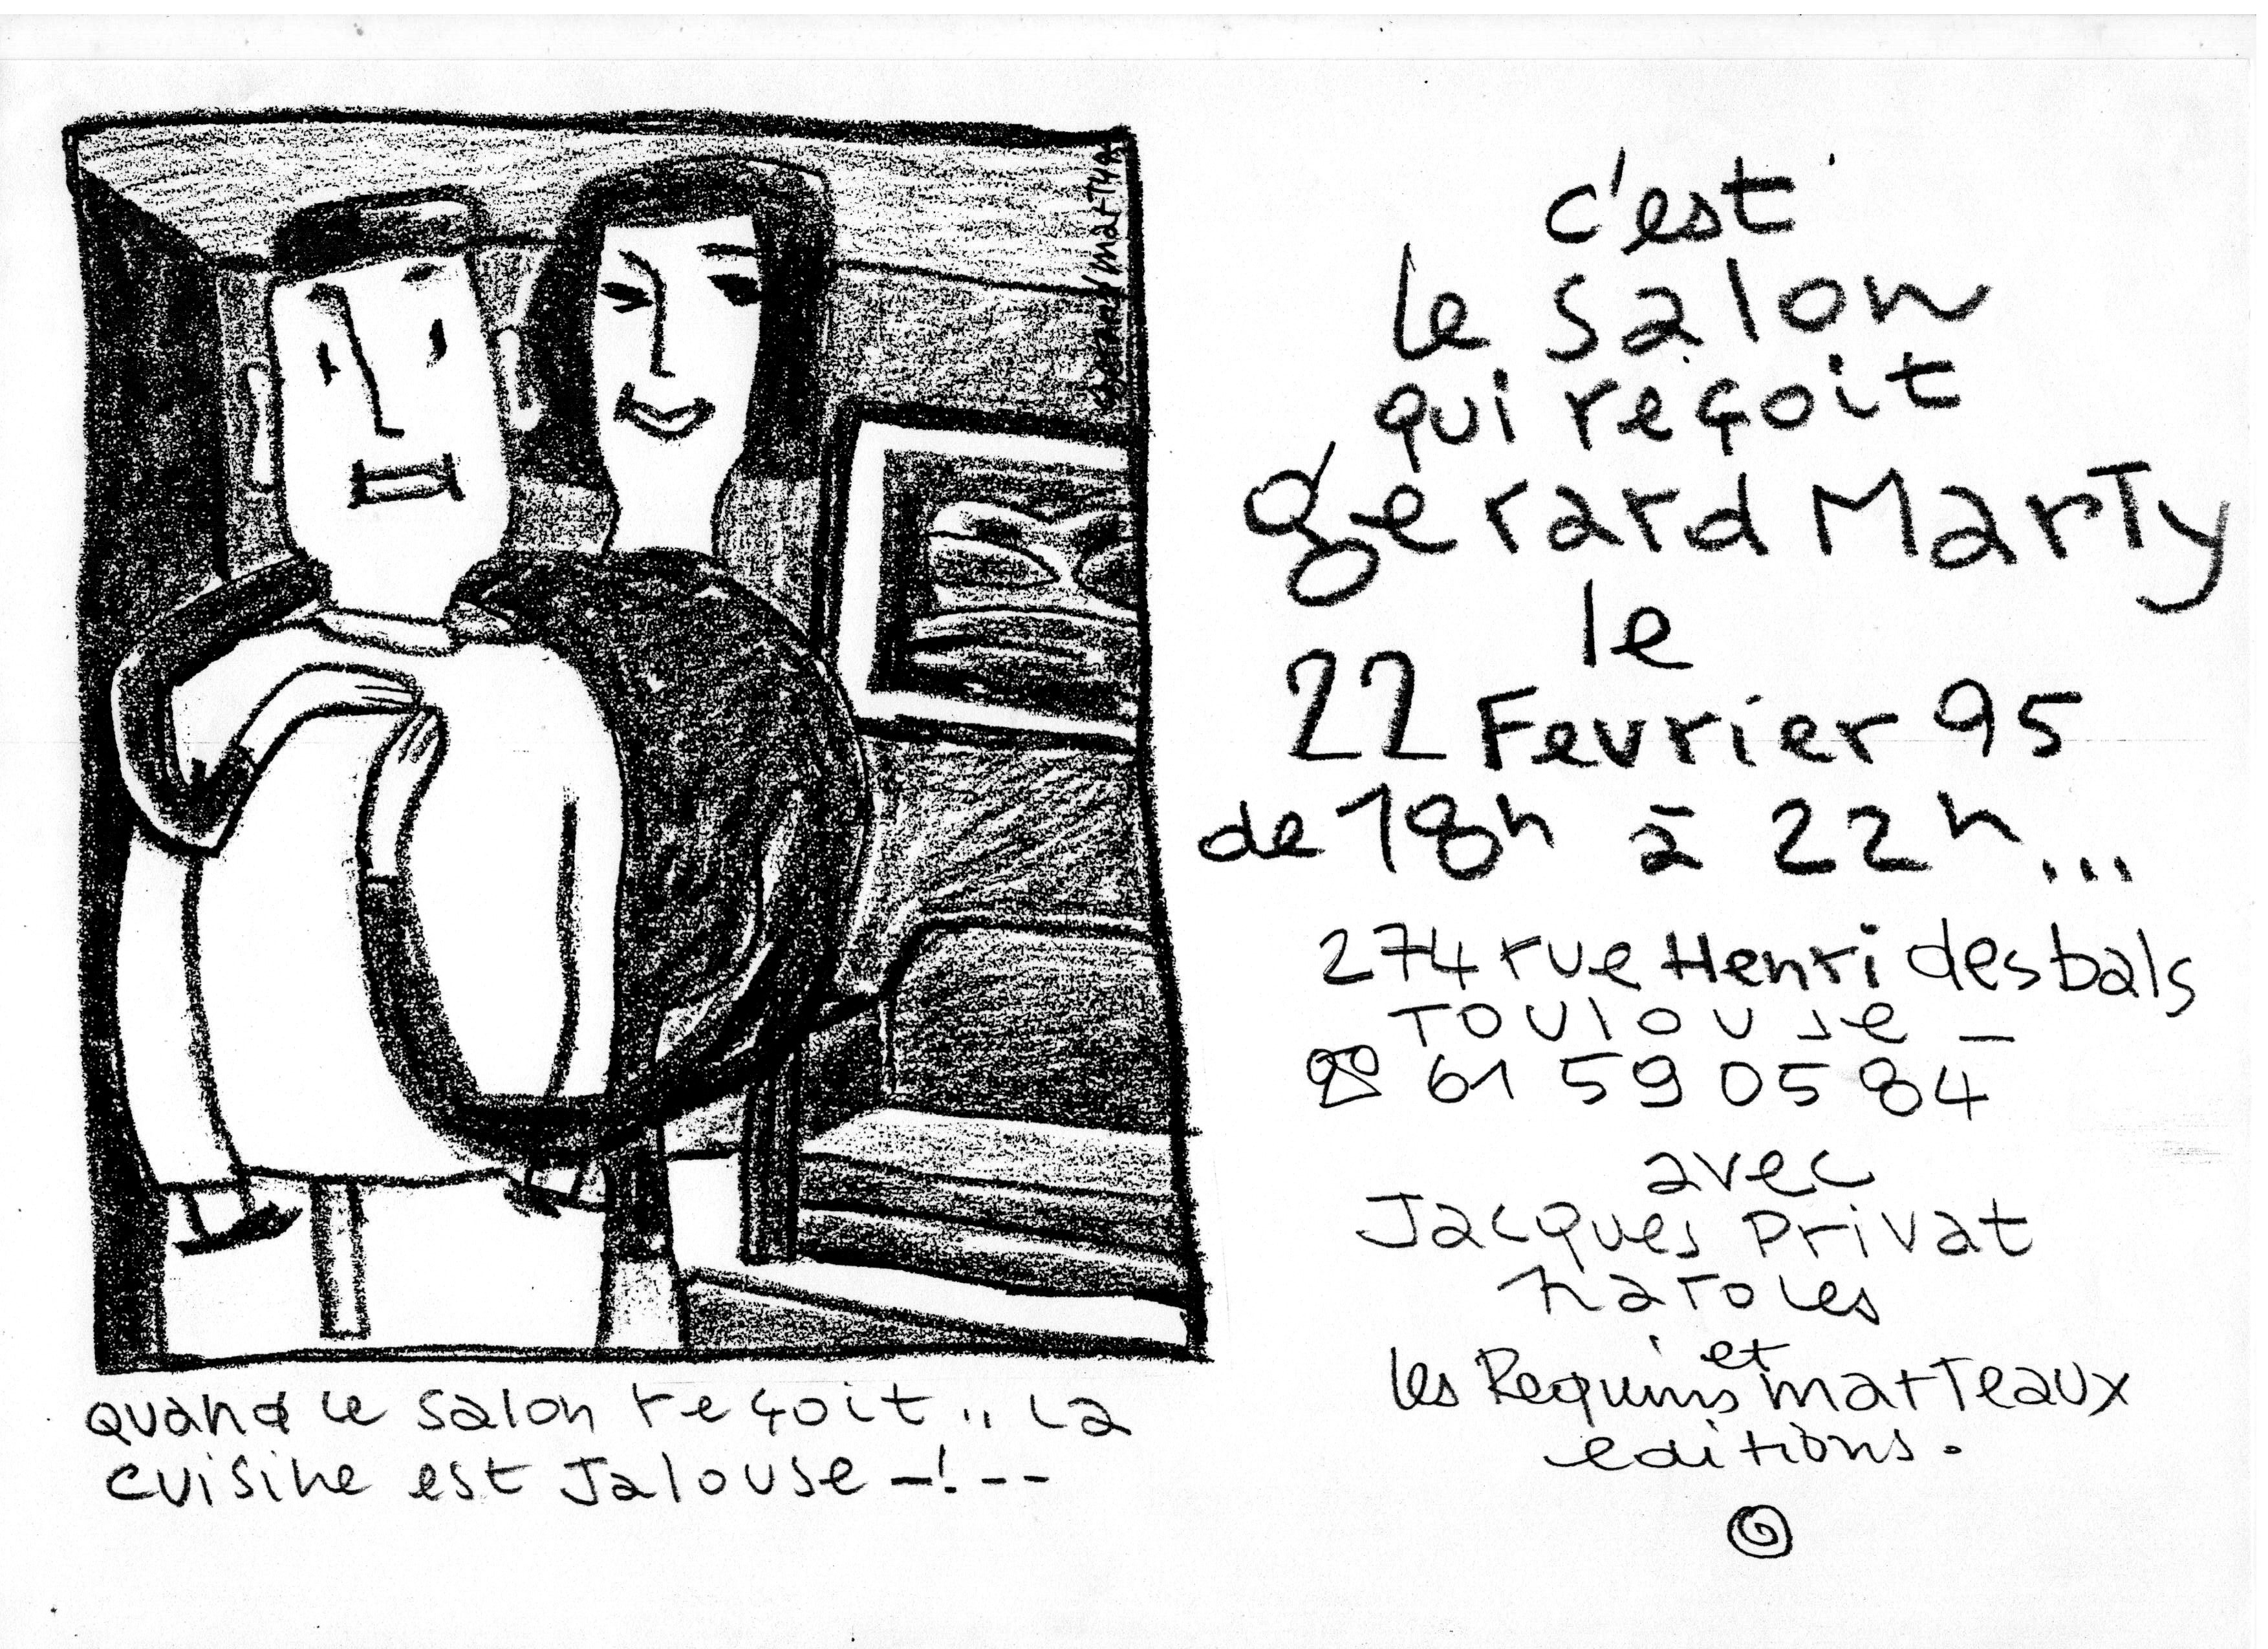 gerard marty 95
quand le salon reçoit .. la
cuisine est Jalouse –!--
c'est
le salon
qui reçoit
gerard Marty
le
22 Fevrier 95
de 18h à 22h...
274 rue Henri desbals
Toulouse –
☎ 61 59 05 84
avec
Jacques Privat
naroles
et
les Requins marteaux
editions.